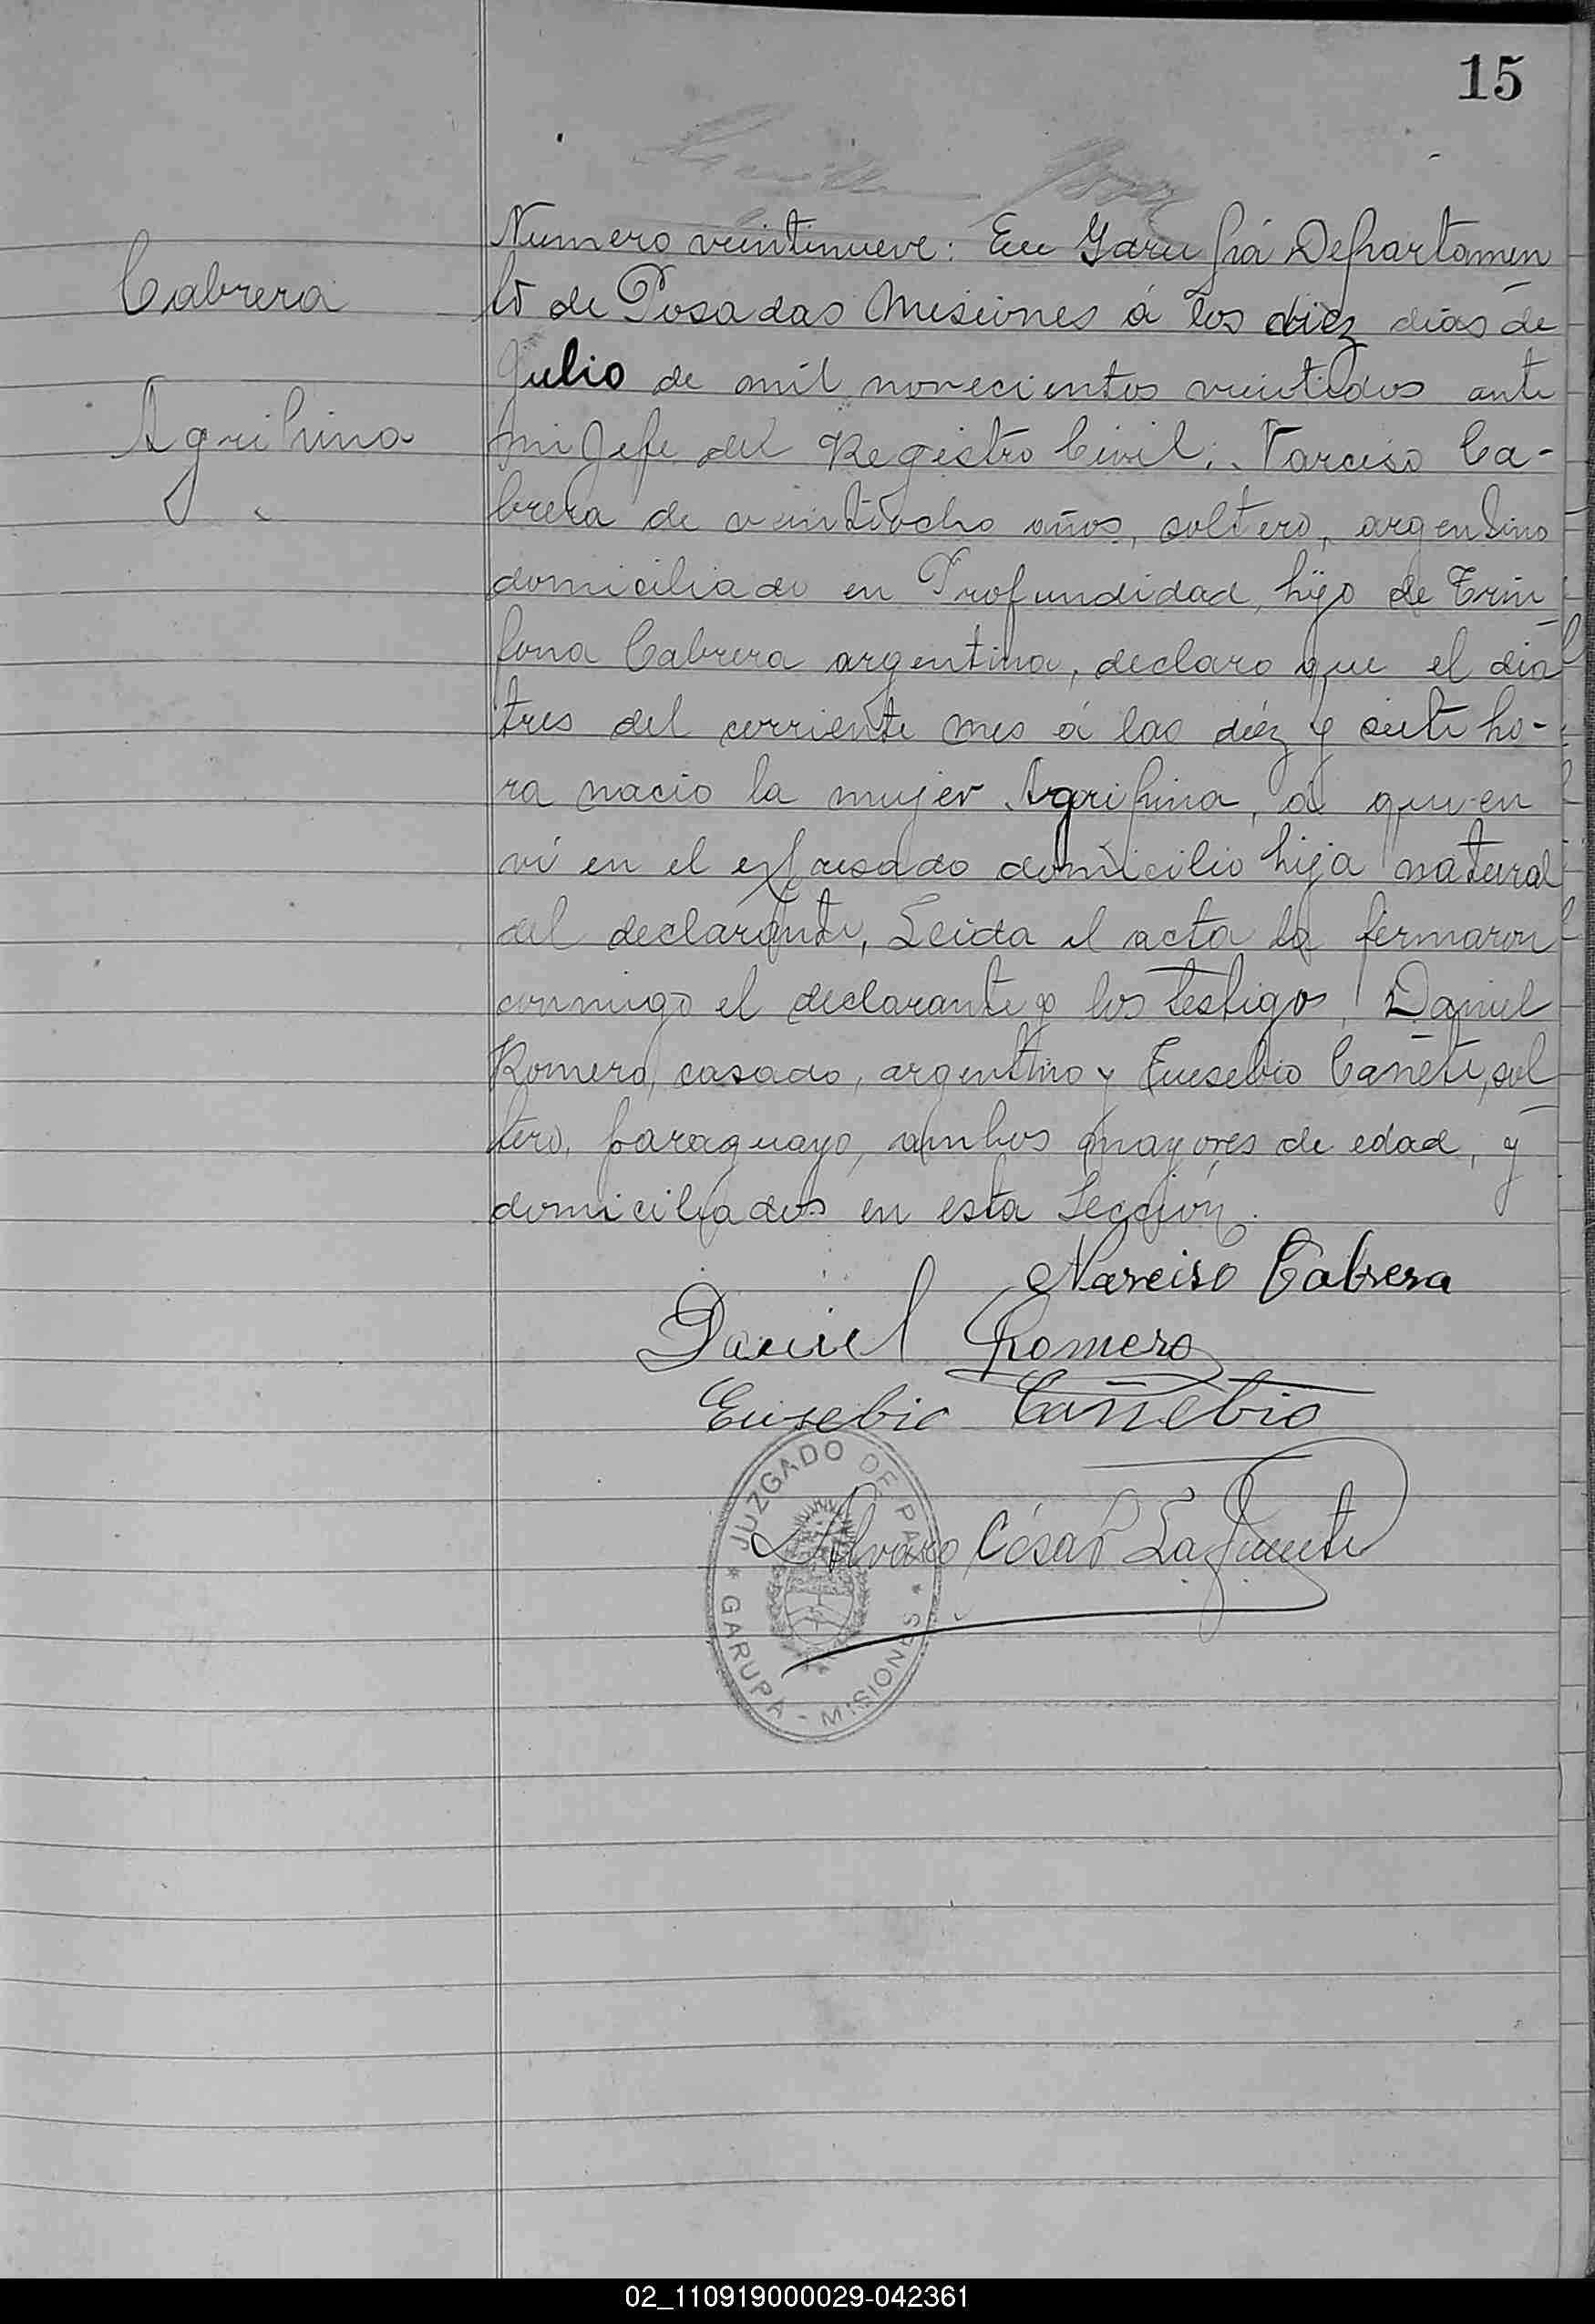 15
Cabrera
Agripina
Numero veintinueve: En Garupá Departamen
to de Posadas Misiones á los diez dias de
Julio de mil novecientos veintidos ante
mi Jefe del Registro Civil: Narciso Ca-
brera de veintiocho años, soltero, argentino
domiciliado en Profundidad, hijo de
Cabrera argentina, declaro que el dia
tres del corriente mes á las diéz y siete ho-
ra nacio la mujer Agripina, á quien
ví en el expresado domicilio hija natural
del declarante, Leida el acta la firmaron
conmigo el declarante y los testigos, Daniel
Romero, casado, argentino y Euesebio Cañete, sol
tero, paraguayo, ambos mayores de edad, y
domiciliados en esta Sección.
Narciso Cabrera
Daniel Romero
Eusebio Cañebio
Alvaro César Lafuente
JUZGADO DE PAZ * GARUPA - MISIONES *
02_110919000029-042361